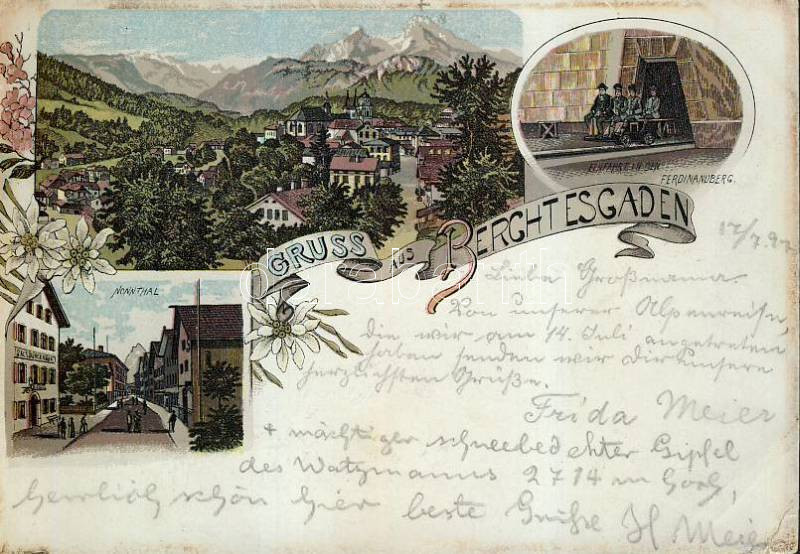 EINFAHRT IN DEN
FERDINANDBERG.
GRUSS AUS BERCHTESGADEN
NONNTHAL
17/7.97
Liebe Großmama.
Von unserer Alpenreise,
die wir am 14. Juli angetreten
haben senden wir Dir unsere
herzlichsten Grüße.
Frida Meier
+ mächtiger schneebedeckter Gipfel
des Watzmanns 2714 m hoch,
Herrlich schön hier beste Grüße H Meier
darabanth